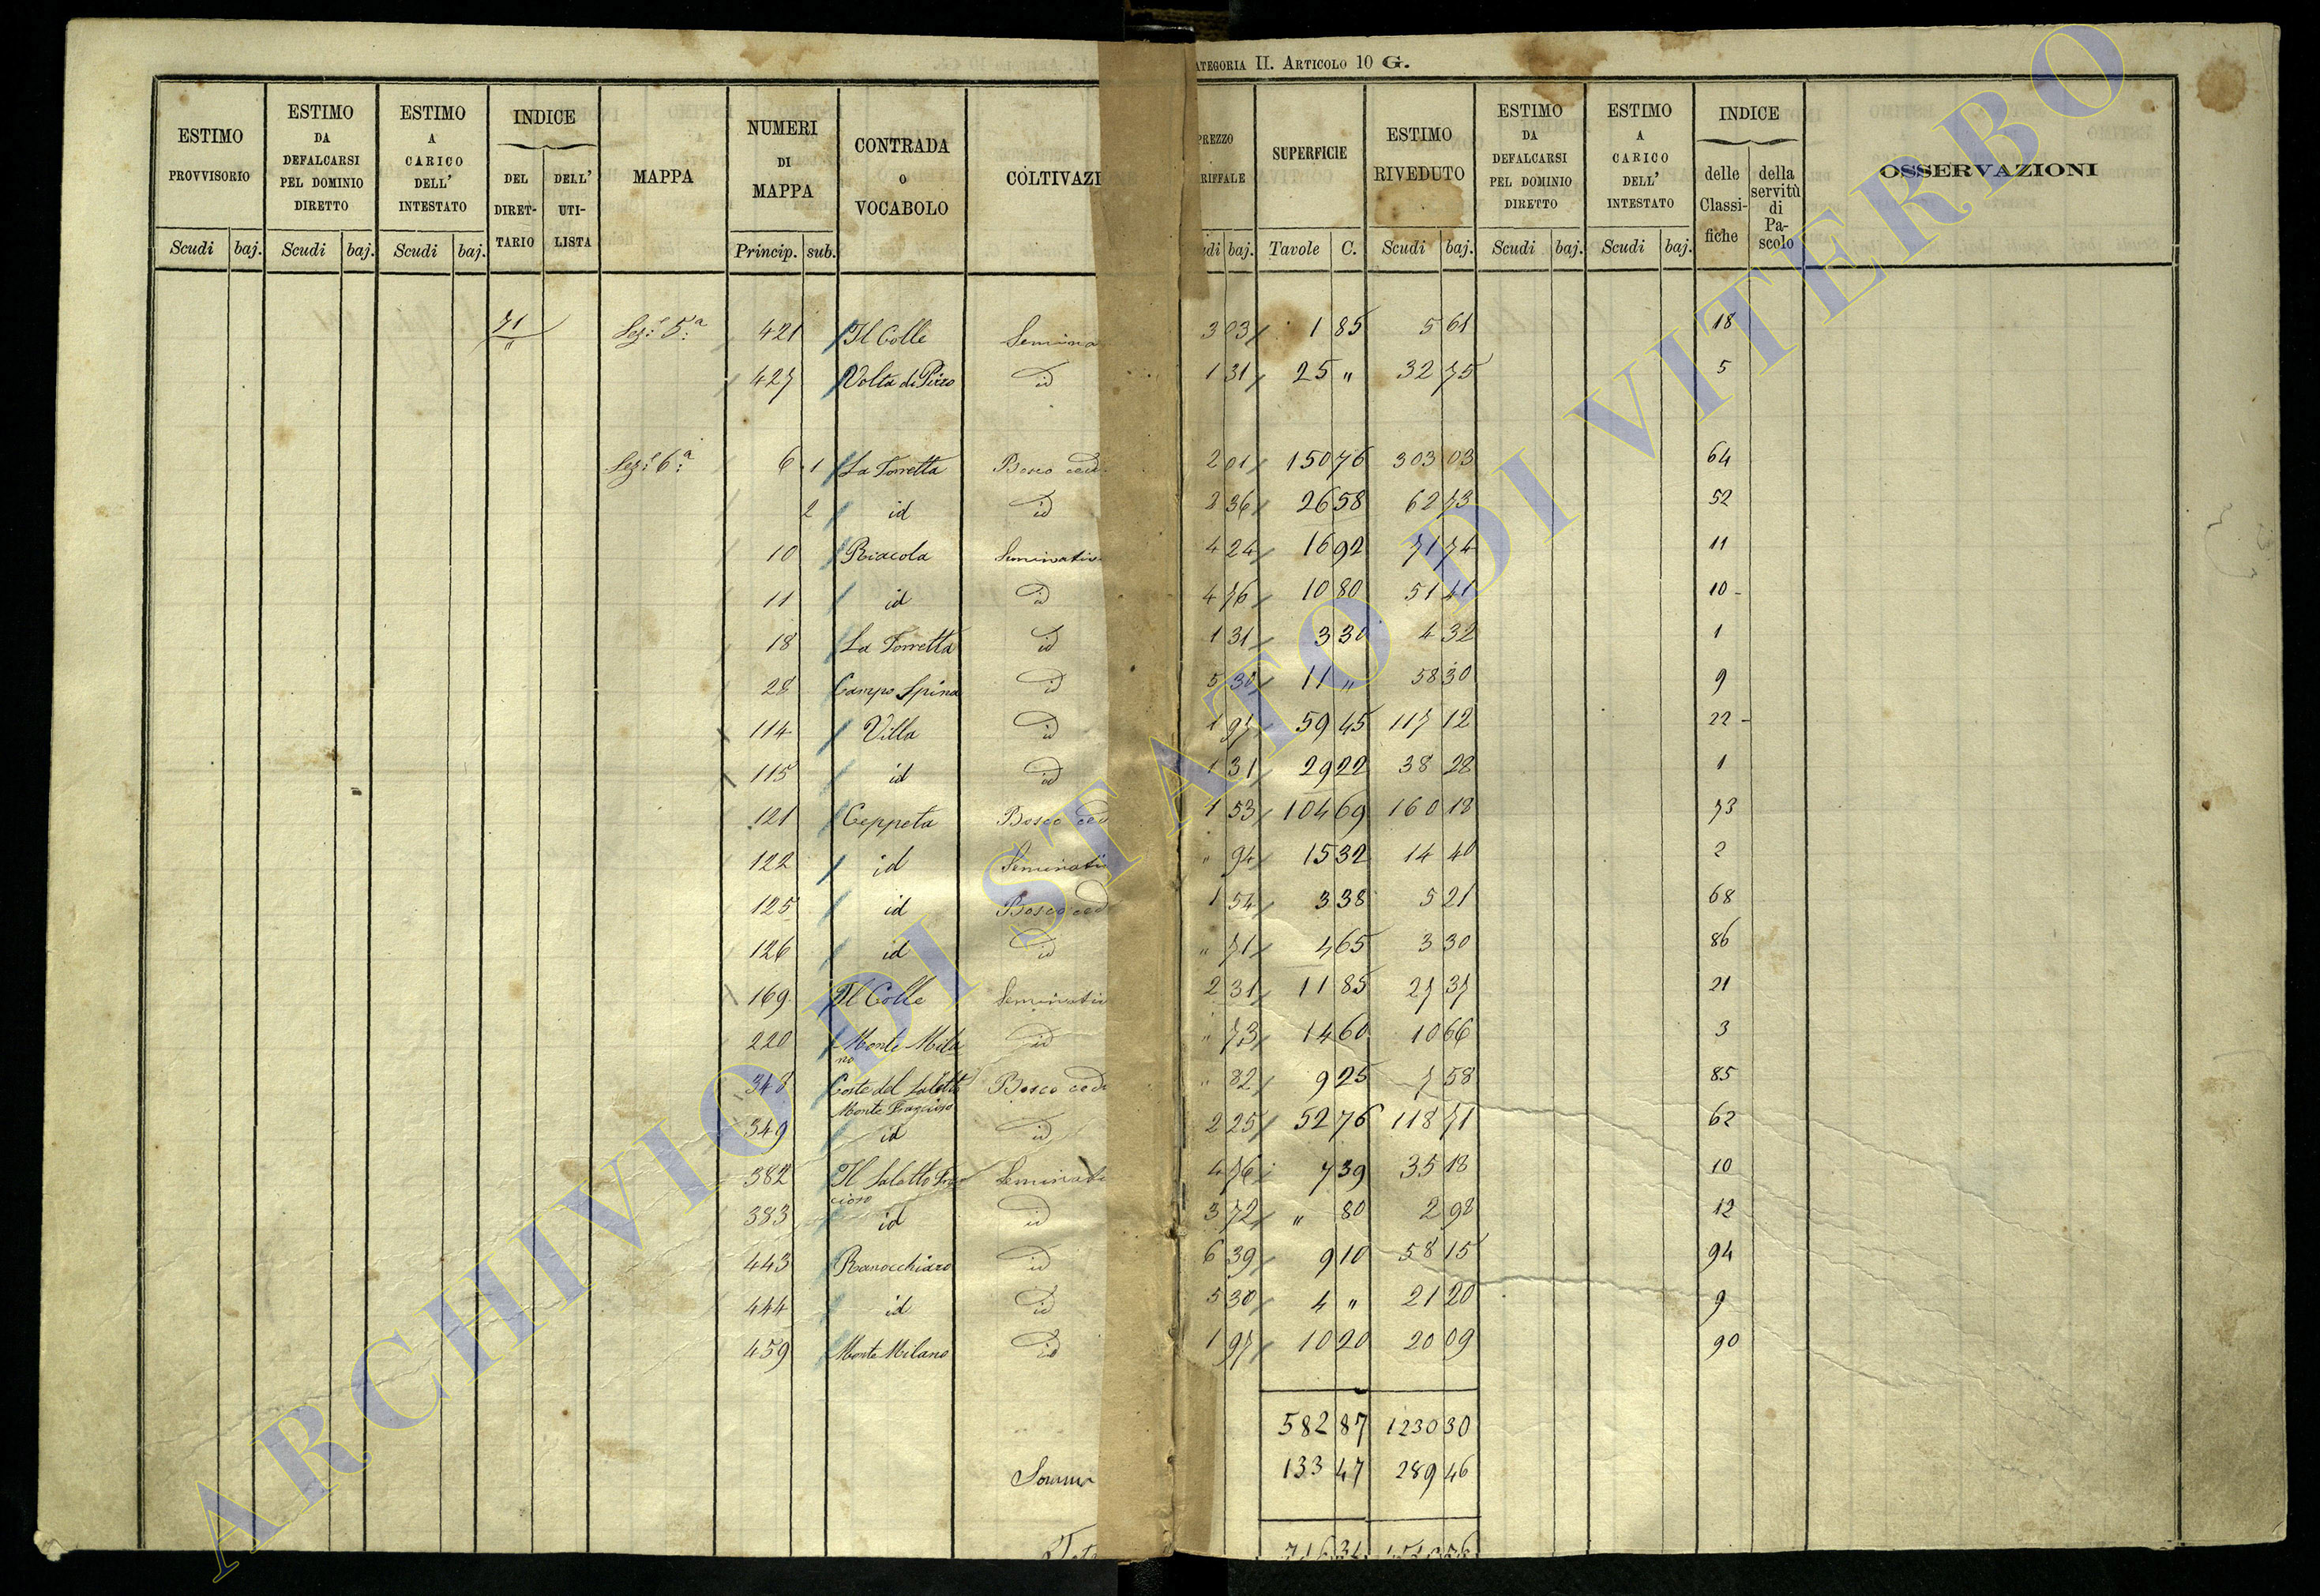 CATEGORIA II. ARTICOLO 10 G.
ESTIMO PROVVISORIO Scudi baj.
ESTIMO DA DEFALCARSI PEL DOMINIO DIRETTO Scudi baj.
ESTIMO A CARICO DELL' INTESTATO Scudi baj.
INDICE DEL DIRET-TARIO DELL' UTI-LISTA
MAPPA
NUMERI DI MAPPA Princip. sub.
CONTRADA O VOCABOLO
COLTIVAZI
PREZZO RIFFALE udi baj.
SUPERFICIE Tavole C.
ESTIMO RIVEDUTO Scudi baj.
ESTIMO DA DEFALCARSI PEL DOMINIO DIRETTO Scudi baj.
ESTIMO A CARICO DELL' INTESTATO Scudi baj.
INDICE delle Classi-fiche della servitù di Pa-scolo
OSSERVAZIONI
71 Sez.e 5.a 421 Il Colle Semina 3 03 1 85 5 61 18
427 Volta di id 1 31 25 " 32 75 5
Sez.e 6.a 6 1 La Torretta Bosco ced 2 01 150 76 303 03 64
2 id id 2 36 26 58 62 73 52
10 Riacola Seminativ 4 24 16 92 71 74 11
11 id id 4 76 10 80 51 41 10
18 La Torretta id 1 31 3 30 4 32 1
28 Campo Spina id 5 30 11 " 58 30 9
114 Villa id 1 97 59 45 117 12 22
115 id id 1 31 29 22 38 28 1
121 Ceppeta Bosco ced 1 53 104 69 160 18 73
122 id Seminati " 94 15 32 14 40 2
125 id Bosco ced 1 54 3 38 5 21 68
126 id id " 71 4 65 3 30 86
169 Il Colle Seminativ 2 31 11 85 27 37 21
220 Monte Mila no id " 73 14 60 10 66 3
348 Coste del Saletto Monte Bosco ced " 82 9 25 7 58 85
349 id id 2 25 52 76 118 71 62
382 Il Saletto Seminati 4 76 7 39 35 18 10
383 id id 3 72 " 80 2 98 12
443 Ranocchiaro id 6 39 9 10 58 15 94
444 id id 5 30 4 " 21 20 9
459 Monte Milano id 1 97 10 20 20 09 90
582 87 1230 30
Somm 133 47 289 46
716 34
ARCHIVIO DI STATO DI VITERBO